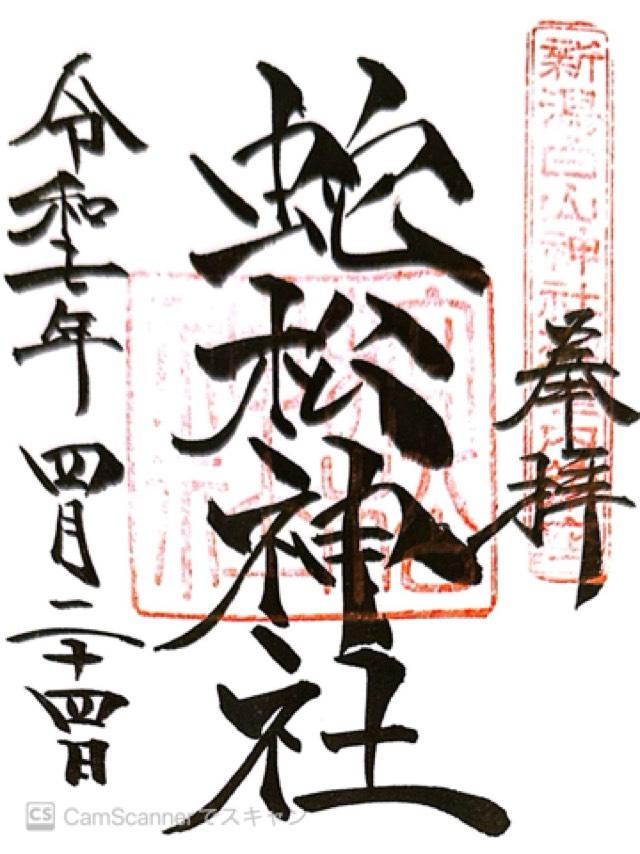 新潟白山神社
奉拝
蛇松神社
令和七年 四月二十四日
CS CamScannerでスキャン